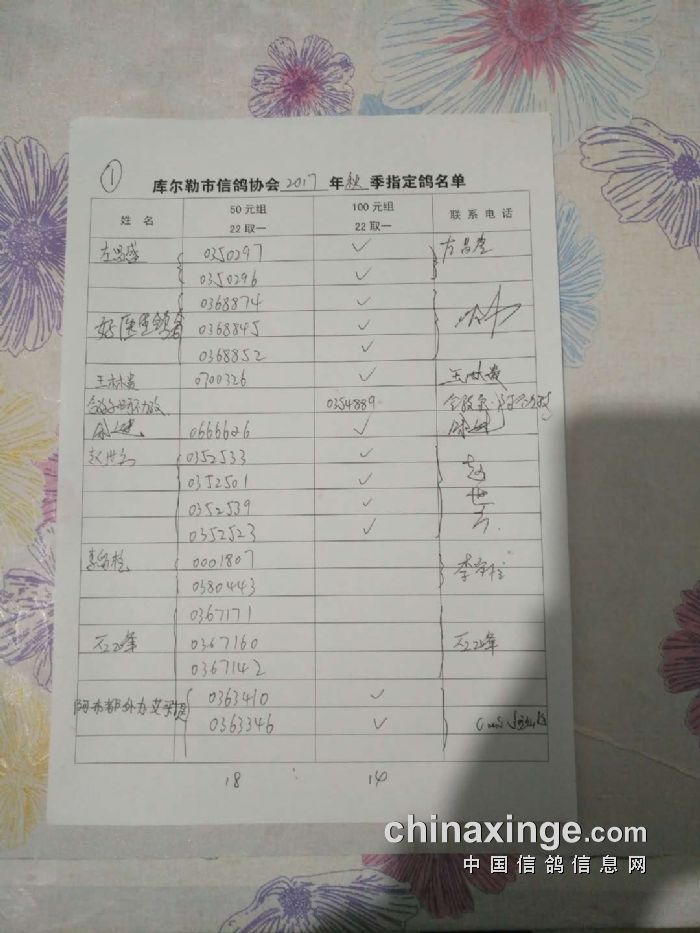 ①
库尔勒市信鸽协会 2017 年 秋 季指定鸽名单
姓 名 50元组 22取一 100元组 22取一 联系电话
左昌盛 0350297 ✓ 左昌盛
0350296 ✓
0368874 ✓
好医生鸽舍 0368845 ✓
0368852 ✓
王林贵 0700326 ✓ 王林贵
0354889
0666626 ✓
赵世 0352533 ✓ 赵
0352501 ✓ 世
0352539 ✓
0352523 ✓
李 0001807 李
0380443
0367171
峰 0367160 峰
0367142
0363410 ✓
0363346 ✓
18 14
chinaxinge.com
中国信鸽信息网